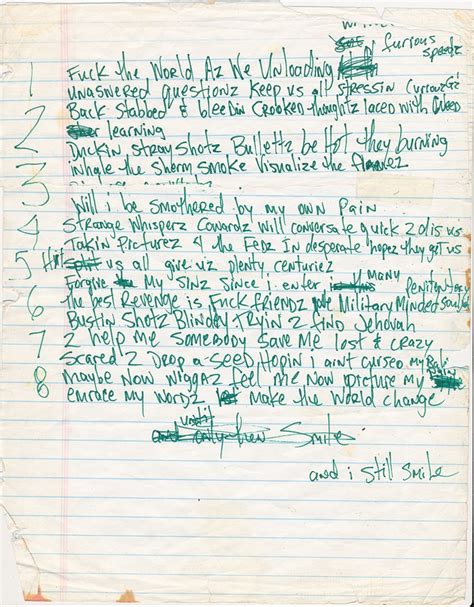 furious
speedz
1 Fuck the World Az We Unloading
unaswered questionz keep us all stressin curiousez
Back Stabbed & bleedin Crooked thoughtz laced with weed
2 learning
Duckin stray shotz Bullettz be Hot they burning
inhale the Sherm smoke Visualize the flamez
3
Will i be smothered by my own Pain
4 Strange Whisperz Cowardz Will conversate quick 2 dis us
Takin Picturez 4 the Fedz In desperate hopez they get us
5 Hit us all give uz plenty centuriez
Forgive My SINz Since i enter many penitentiary
6 the best Revenge is Fuck friendz Military Minded Soulja
Bustin Shotz Blindley Tryin 2 find Jehovah
7 2 help me somebody save me lost & crazy
Scared 2 Drop a seed Hopin i aint cursed my
8 maybe Now Niggaz feel me Now picture my
emrace my wordz make the World change
until
Smile
and i still smile